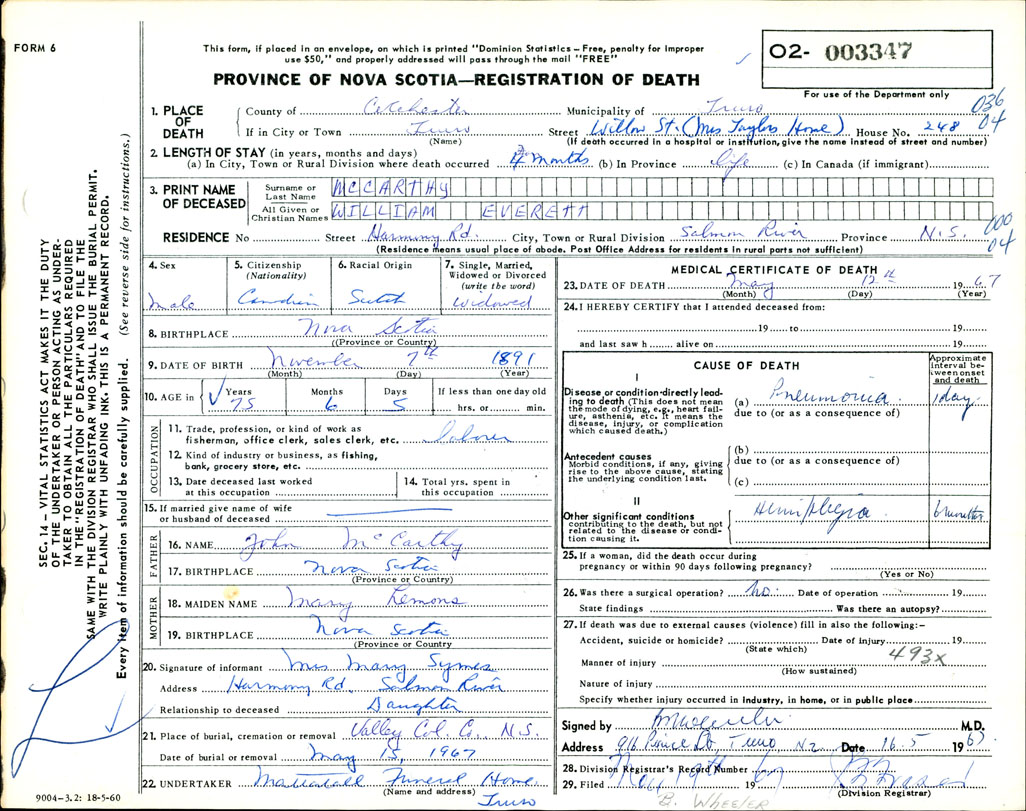 FORM 6
This form, if placed in an envelope, on which is printed "Dominion Statistics – Free, penalty for improper
use $50," and properly addressed will pass through the mail "FREE"
PROVINCE OF NOVA SCOTIA—REGISTRATION OF DEATH
O2- 003347
For use of the Department only
036
04
SEC. 14 – VITAL STATISTICS ACT MAKES IT THE DUTY
OF THE UNDERTAKER OR PERSON ACTING AS UNDER-
TAKER TO OBTAIN ALL THE PARTICULARS REQUIRED
IN THE "REGISTRATION OF DEATH" AND TO FILE THE
SAME WITH THE DIVISION REGISTRAR WHO SHALL ISSUE THE BURIAL PERMIT.
WRITE PLAINLY WITH UNFADING INK. THIS IS A PERMANENT RECORD.
Every item of information should be carefully supplied. (See reverse side for instructions.)
1. PLACE OF DEATH
County of Colchester Municipality of Truro
If in City or Town Truro Street Willow St. (Mrs Taylors Home) House No. 248
(Name) (If death occurred in a hospital or institution, give the name instead of street and number)
2. LENGTH OF STAY (in years, months and days)
(a) In City, Town or Rural Division where death occurred months (b) In Province Life (c) In Canada (if immigrant)
3. PRINT NAME OF DECEASED
Surname or Last Name MCCARTHY
All Given or Christian Names WILLIAM EVERETT
RESIDENCE No Street Harmony Rd. City, Town or Rural Division Salmon River Province N.S.
000
04
(Residence means usual place of abode. Post Office Address for residents in rural parts not sufficient)
4. Sex
Male
5. Citizenship (Nationality)
Canadian
6. Racial Origin
Scotch
7. Single, Married, Widowed or Divorced (write the word)
Widowed
8. BIRTHPLACE Nova Scotia
((Province or Country)
9. DATE OF BIRTH November 7th 1891
(Month) (Day) (Year)
10. AGE in Years 75 Months 6 Days 5 If less than one day old hrs. or min.
OCCUPATION
11. Trade, profession, or kind of work as
fisherman, office clerk, sales clerk, etc. Laborer
12. Kind of industry or business, as fishing,
bank, grocery store, etc.
13. Date deceased last worked
at this occupation
14. Total yrs. spent in
this occupation
15. If married give name of wife
or husband of deceased
FATHER
16. NAME John McCarthy
17. BIRTHPLACE Nova Scotia
(Province or Country)
MOTHER
18. MAIDEN NAME Mary Lemons
19. BIRTHPLACE Nova Scotia
(Province or Country
20. Signature of informant Mrs Mary Symes
Address Harmony Rd. Salmon River
Relationship to deceased Daughter
21. Place of burial, cremation or removal Valley Col. Co. N.S.
Date of burial or removal May 15, 1967
22. UNDERTAKER Mattatall Funeral Home
(Name and address) Truro
9004-3.2: 18-5-60
MEDICAL CERTIFICATE OF DEATH
23. DATE OF DEATH May 12th 1967
(Month) (Day) (Year)
24. I HEREBY CERTIFY that I attended deceased from:
19 to 19
and last saw h alive on 19
CAUSE OF DEATH
Approximate interval between onset and death
I
Disease or condition directly lead-
ing to death (This does not mean
the mode of dying, e.g., heart fail-
ure, asthenia, etc. It means the
disease, injury, or complication
which caused death.)
(a) Pneumonia 1 day.
due to (or as a consequence of)
Antecedent causes
Morbid conditions, if any, giving
rise to the above cause, stating
the underlying condition last.
(b)
due to (or as a consequence of)
(c)
II
Other significant conditions
contributing to the death, but not
related to the disease or condi-
tion causing it.
Hemiplegia 6 months
25. If a woman, did the death occur during
pregnancy or within 90 days following pregnancy?
(Yes or No)
26. Was there a surgical operation? No. Date of operation 19
State findings Was there an autopsy?
27. If death was due to external causes (violence) fill in also the following:–
Accident, suicide or homicide? Date of injury 19
(State which)
493x
Manner of injury
(How sustained)
Nature of injury
Specify whether injury occurred in industry, in home, or in public place
Signed by M.D.
Address Truro Date 16.5 1967
28. Division Registrar's Record Number
29. Filed 19 67
(Division Registrar)
B. WHEELER